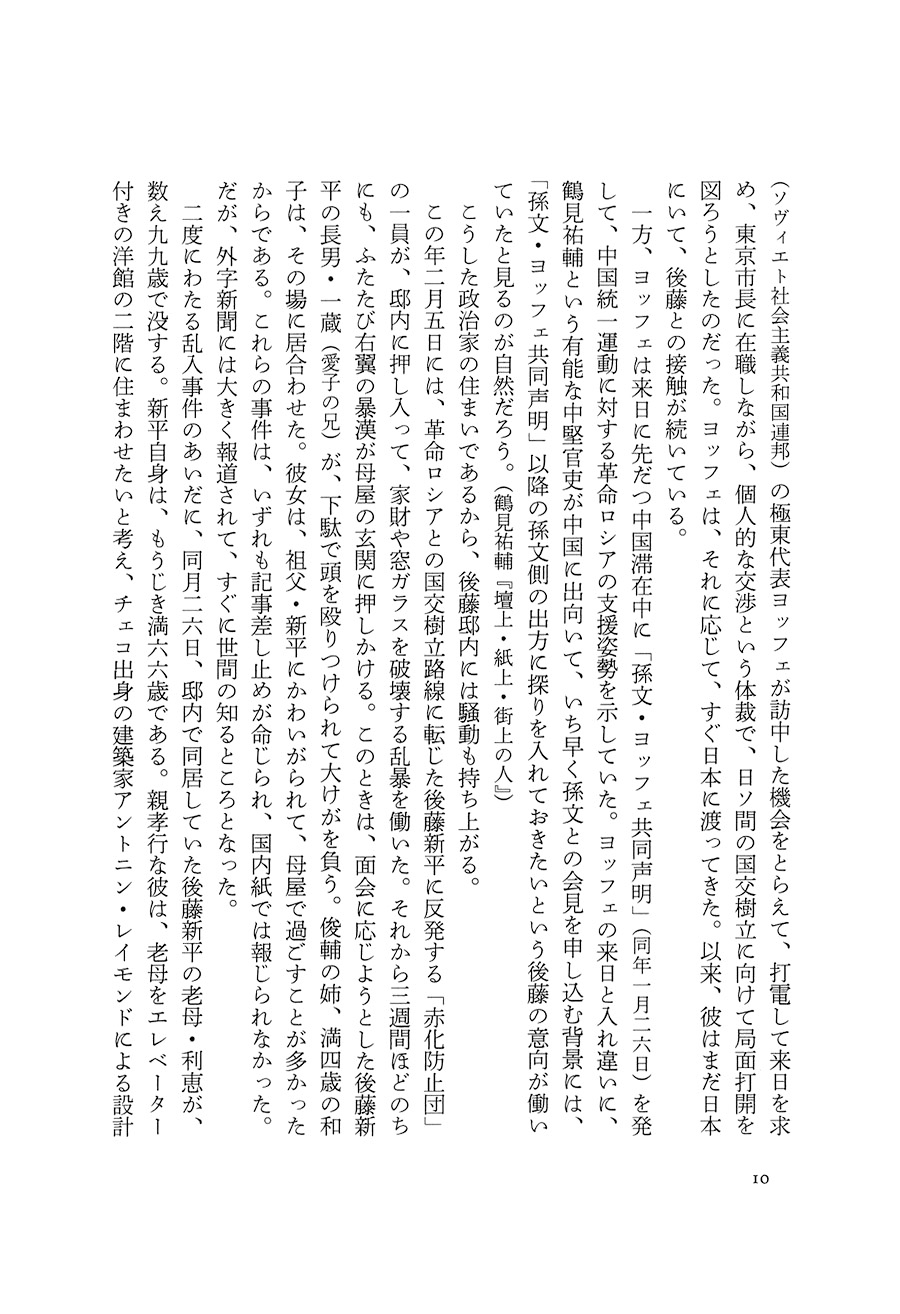 （ソヴィエト社会主義共和国連邦）の極東代表ヨッフェが訪中した機会をとらえて、打電して来日を求
め、東京市長に在職しながら、個人的な交渉という体裁で、日ソ間の国交樹立に向けて局面打開を
図ろうとしたのだった。ヨッフェは、それに応じて、すぐ日本に渡ってきた。以来、彼はまだ日本
にいて、後藤との接触が続いている。
一方、ヨッフェは来日に先だつ中国滞在中に「孫文・ヨッフェ共同声明」（同年一月二六日）を発
して、中国統一運動に対する革命ロシアの支援姿勢を示していた。ヨッフェの来日と入れ違いに、
鶴見祐輔という有能な中堅官吏が中国に出向いて、いち早く孫文との会見を申し込む背景には、
「孫文・ヨッフェ共同声明」以降の孫文側の出方に探りを入れておきたいという後藤の意向が働い
ていたと見るのが自然だろう。（鶴見祐輔『壇上・紙上・街上の人』）
こうした政治家の住まいであるから、後藤邸内には騒動も持ち上がる。
この年二月五日には、革命ロシアとの国交樹立路線に転じた後藤新平に反発する「赤化防止団」
の一員が、邸内に押し入って、家財や窓ガラスを破壊する乱暴を働いた。それから三週間ほどのち
にも、ふたたび右翼の暴漢が母屋の玄関に押しかける。このときは、面会に応じようとした後藤新
平の長男・一蔵（愛子の兄）が、下駄で頭を殴りつけられて大けがを負う。俊輔の姉、満四歳の和
子は、その場に居合わせた。彼女は、祖父・新平にかわいがられて、母屋で過ごすことが多かった
からである。これらの事件は、いずれも記事差し止めが命じられ、国内紙では報じられなかった。
だが、外字新聞には大きく報道されて、すぐに世間の知るところとなった。
二度にわたる乱入事件のあいだに、同月二六日、邸内で同居していた後藤新平の老母・利恵が、
数え九九歳で没する。新平自身は、もうじき満六六歳である。親孝行な彼は、老母をエレベーター
付きの洋館の二階に住まわせたいと考え、チェコ出身の建築家アントニン・レイモンドによる設計
10